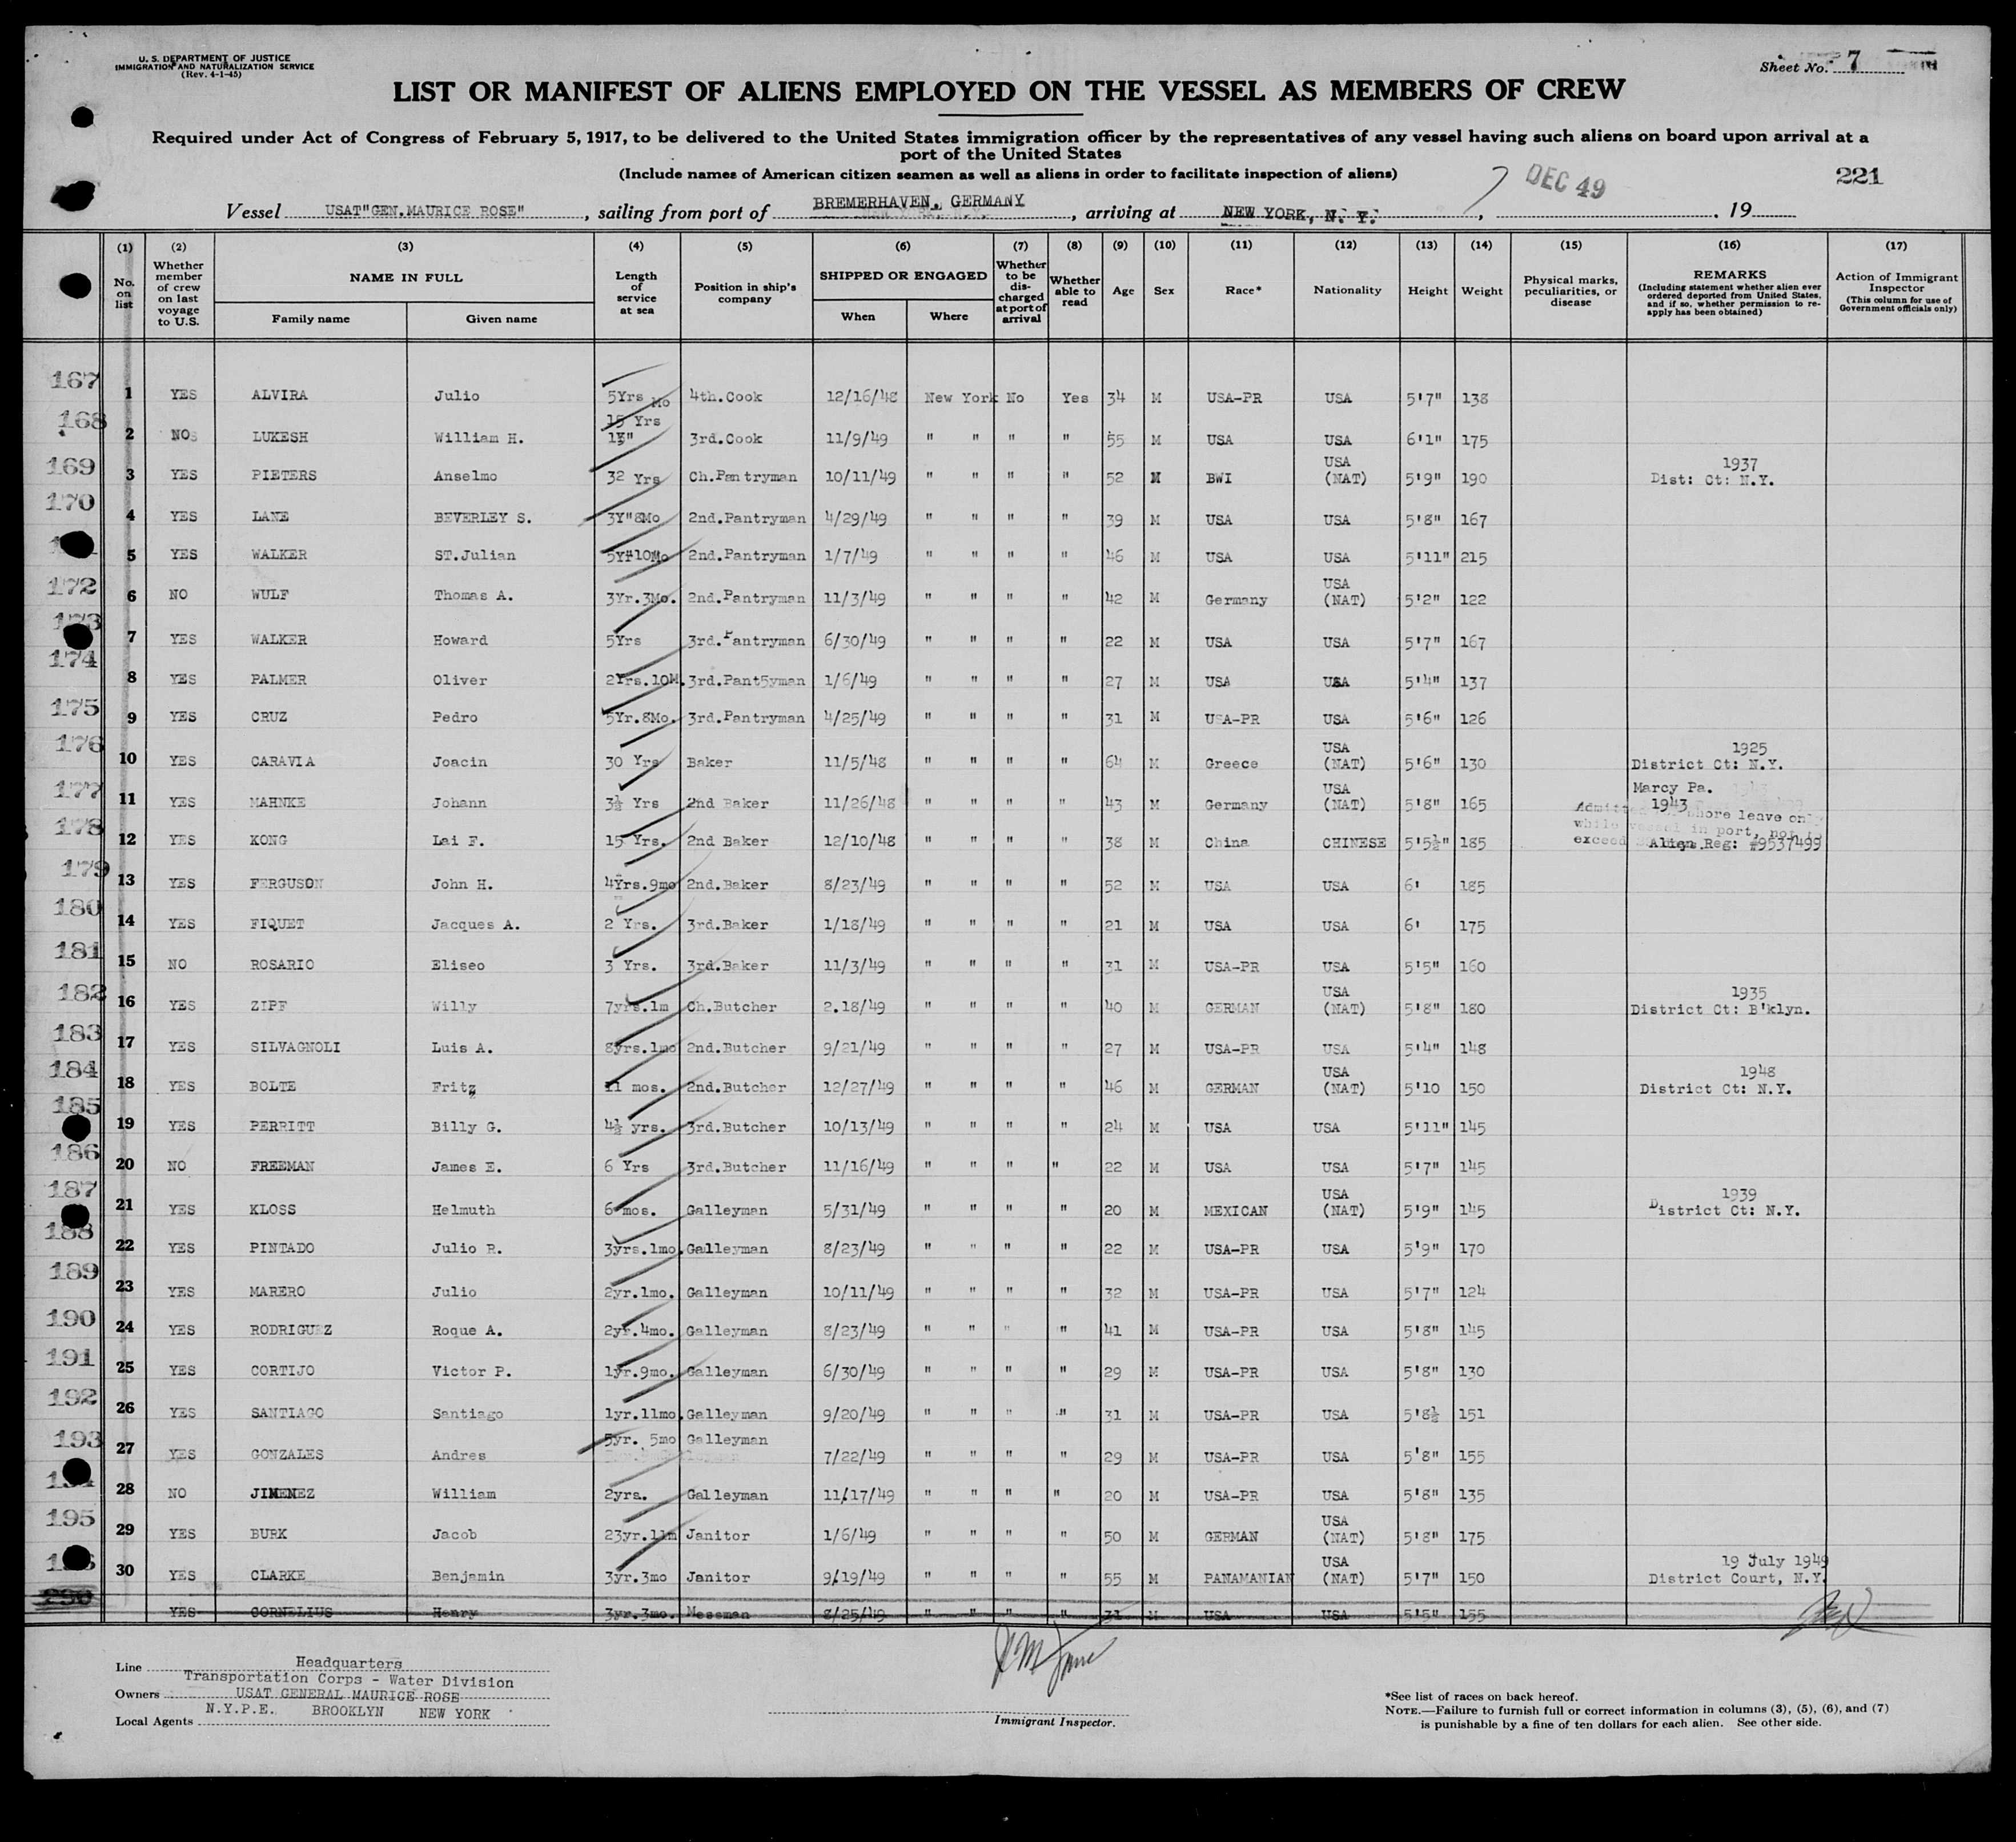 U. S. DEPARTMENT OF JUSTICE
IMMIGRATION AND NATURALIZATION SERVICE
(Rev. 4-1-45)
Sheet No. 7
LIST OR MANIFEST OF ALIENS EMPLOYED ON THE VESSEL AS MEMBERS OF CREW
Required under Act of Congress of February 5, 1917, to be delivered to the United States immigration officer by the representatives of any vessel having such aliens on board upon arrival at a
port of the United States
(Include names of American citizen seamen as well as aliens in order to facilitate inspection of aliens)
DEC 49
221
Vessel USAT"GEN.MAURICE ROSE", sailing from port of BREMERHAVEN, GERMANY, arriving at NEW YORK, N. Y., 19
(1) (2) (3) (4) (5) (6) (7) (8) (9) (10) (11) (12) (13) (14) (15) (16) (17)
No. on list
Whether member of crew on last voyage to U.S.
NAME IN FULL
Family name Given name
Length of service at sea
Position in ship's company
SHIPPED OR ENGAGED
When Where
Whether to be discharged at port of arrival
Whether able to read
Age Sex Race* Nationality Height Weight
Physical marks, peculiarities, or disease
REMARKS
(Including statement whether alien ever ordered deported from United States, and if so, whether permission to re-apply has been obtained)
Action of Immigrant Inspector
(This column for use of Government officials only)
167 1 YES ALVIRA Julio 5Yrs Mo 4th.Cook 12/16/48 New York No Yes 34 M USA-PR USA 5'7" 138
15 Yrs
168 2 NO LUKESH William H. 3rd.Cook 11/9/49 " " " " 55 M USA USA 6'1" 175
169 3 YES PIETERS Anselmo 32 Yrs Ch.Pantryman 10/11/49 " " " " 52 M BWI USA (NAT) 5'9" 190 1937 Dist: Ct: N.Y.
170 4 YES LANE BEVERLEY S. 3Y"8Mo 2nd.Pantryman 4/29/49 " " " " 39 M USA USA 5'8" 167
5 YES WALKER ST.Julian 5Y"10Mo 2nd.Pantryman 1/7/49 " " " " 46 M USA USA 5'11" 215
172 6 NO WULF Thomas A. 3Yr.3Mo. 2nd.Pantryman 11/3/49 " " " " 42 M Germany USA (NAT) 5'2" 122
173 7 YES WALKER Howard 5Yrs 3rd.Pantryman 6/30/49 " " " " 22 M USA USA 5'7" 167
174 8 YES PALMER Oliver 2Yrs.10M. 3rd.Pant5yman 1/6/49 " " " " 27 M USA USA 5'4" 137
175 9 YES CRUZ Pedro 5Yr.8Mo. 3rd.Pantryman 4/25/49 " " " " 31 M USA-PR USA 5'6" 126
176 10 YES CARAVIA Joacin 30 Yrs Baker 11/5/48 " " " " 64 M Greece USA (NAT) 5'6" 130 1925 District Ct: N.Y.
177 11 YES MAHNKE Johann 3½ Yrs 2nd Baker 11/26/48 " " " " 43 M Germany USA (NAT) 5'8" 165 Marcy Pa. 1943
shore leave only
while vessel in port, not to
exceed
178 12 YES KONG Lai F. 15 Yrs. 2nd Baker 12/10/48 " " " " 38 M China CHINESE 5'5½" 185 Alien Reg: #9537499
179 13 YES FERGUSON John H. 4Yrs.9mo 2nd.Baker 8/23/49 " " " " 52 M USA USA 6' 185
180 14 YES FIQUET Jacques A. 2 Yrs. 3rd.Baker 1/18/49 " " " " 21 M USA USA 6' 175
181 15 NO ROSARIO Eliseo 3 Yrs. 3rd.Baker 11/3/49 " " " " 31 M USA-PR USA 5'5" 160
182 16 YES ZIPF Willy 7yrs.1m Ch.Butcher 2.18/49 " " " " 40 M GERMAN USA (NAT) 5'8" 180 1935 District Ct: B'klyn.
183 17 YES SILVAGNOLI Luis A. 8yrs.1mo 2nd.Butcher 9/21/49 " " " " 27 M USA-PR USA 5'4" 148
184 18 YES BOLTE Fritz 11 mos. 2nd.Butcher 12/27/49 " " " " 46 M GERMAN USA (NAT) 5'10 150 1948 District Ct: N.Y.
185 19 YES PERRITT Billy G. 4½ yrs. 3rd.Butcher 10/13/49 " " " " 24 M USA USA 5'11" 145
186 20 NO FREEMAN James E. 6 Yrs 3rd.Butcher 11/16/49 " " " " 22 M USA USA 5'7" 145
187 21 YES KLOSS Helmuth 6 mos. Galleyman 5/31/49 " " " " 20 M MEXICAN USA (NAT) 5'9" 145 1939 District Ct: N.Y.
188 22 YES PINTADO Julio R. 3yrs.1mo. Galleyman 8/23/49 " " " " 22 M USA-PR USA 5'9" 170
189 23 YES MARERO Julio 2yr.1mo. Galleyman 10/11/49 " " " " 32 M USA-PR USA 5'7" 124
190 24 YES RODRIGUEZ Roque A. 2yr.4mo. Galleyman 8/23/49 " " " " 41 M USA-PR USA 5'8" 145
191 25 YES CORTIJO Victor P. 1yr.9mo. Galleyman 6/30/49 " " " " 29 M USA-PR USA 5'8" 130
192 26 YES SANTIAGO Santiago 1yr.11mo. Galleyman 9/20/49 " " " " 31 M USA-PR USA 5'8½ 151
193 27 YES GONZALES Andres 5yr. 5mo Galleyman 7/22/49 " " " " 29 M USA-PR USA 5'8" 155
28 NO JIMENEZ William 2yrs. Galleyman 11/17/49 " " " " 20 M USA-PR USA 5'8" 135
195 29 YES BURK Jacob 23yr.11m Janitor 1/6/49 " " " " 50 M GERMAN USA (NAT) 5'8" 175
30 YES CLARKE Benjamin 3yr.3mo Janitor 9/19/49 " " " " 55 M PANAMANIAN USA (NAT) 5'7" 150 19 July 1949 District Court, N.Y.
YES CORNELIUS Henry 3yr.3mo. Messman 8/25/49 " " " " 31 M USA USA 5'5" 155
Line Headquarters
Transportation Corps - Water Division
Owners USAT GENERAL MAURICE ROSE
Local Agents N.Y.P.E. BROOKLYN NEW YORK
Immigrant Inspector.
*See list of races on back hereof.
NOTE.—Failure to furnish full or correct information in columns (3), (5), (6), and (7)
is punishable by a fine of ten dollars for each alien. See other side.